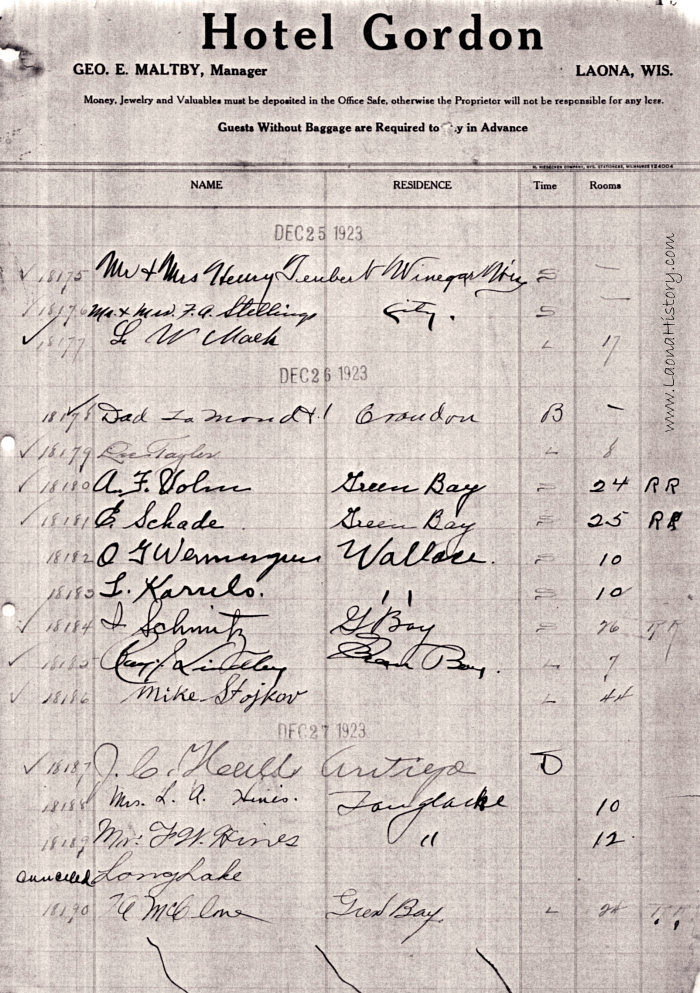 Hotel Gordon
GEO. E. MALTBY, Manager LAONA, WIS.
Money, Jewelry and Valuables must be deposited in the Office Safe, otherwise the Proprietor will not be responsible for any loss.
Guests Without Baggage are Required to in Advance
124004
NAME RESIDENCE Time Rooms
DEC 25 1923
18175 Mr & Mrs Henry Teubert Winegar Wis S –
18176 Mr. & Mrs. F. A. Stellings City. S
18177 L W Mack L 17
DEC 26 1923
18178 Dad Lamond Crandon B –
18179 Taylor L 8
18180 A. F. Volm Green Bay 24 RR
18181 E Schade Green Bay 25 RR
18182 O G Wallace. 10
18183 L. " 10
18184 I Schmitz G Bay 26
18185 Green Bay. L 7
18186 Mike Stojkov L 44
DEC 27 1923
18187 J. C. Antigo D
18188 Mrs. L. A. Hines. Longlake 10
18189 Mr. F. W. Hines " 12
cancelled Long Lake
18190 Green Bay. L
www.LaonaHistory.com